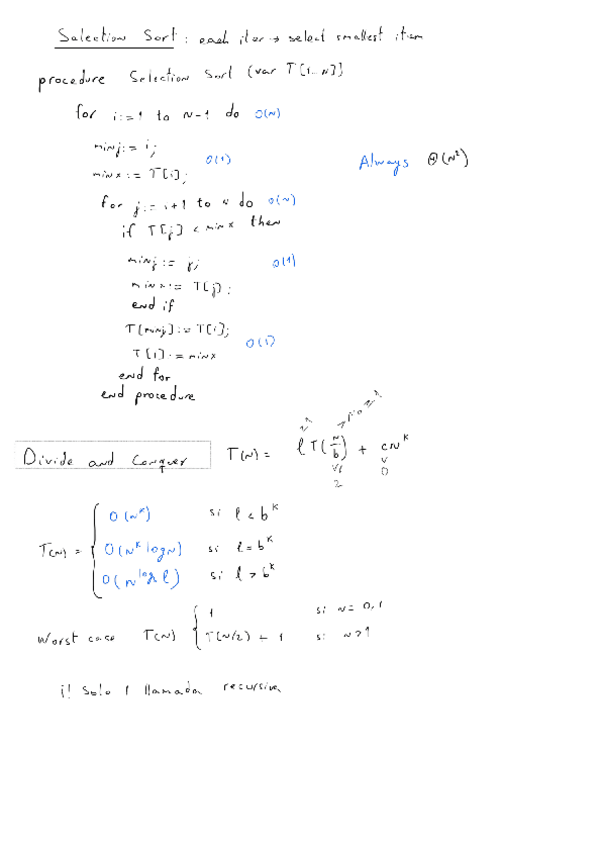 Selection Sort : each iter → select smallest item
procedure Selection Sort (var T[1..N])
for i:=1 to N-1 do O(N)
minj:= i;
O(1)
minx := T[i];
Always Θ(N²)
for j:= i+1 to N do O(N)
if T[j] < minx then
minj := j;
O(1)
minx:= T[j];
end if
T[minj]:= T[i];
O(1)
T[i]:= minx
end for
end procedure
Divide and Conquer T(N) = l T(N/b) + cN^K
T(N) =
O(N^K) si l < b^K
O(N^K log N) si l = b^K
O(N^log_b l) si l > b^K
Worst case T(N)
1 si N = 0,1
T(N/2) + 1 si N>1
¡! Solo 1 llamada recursiva